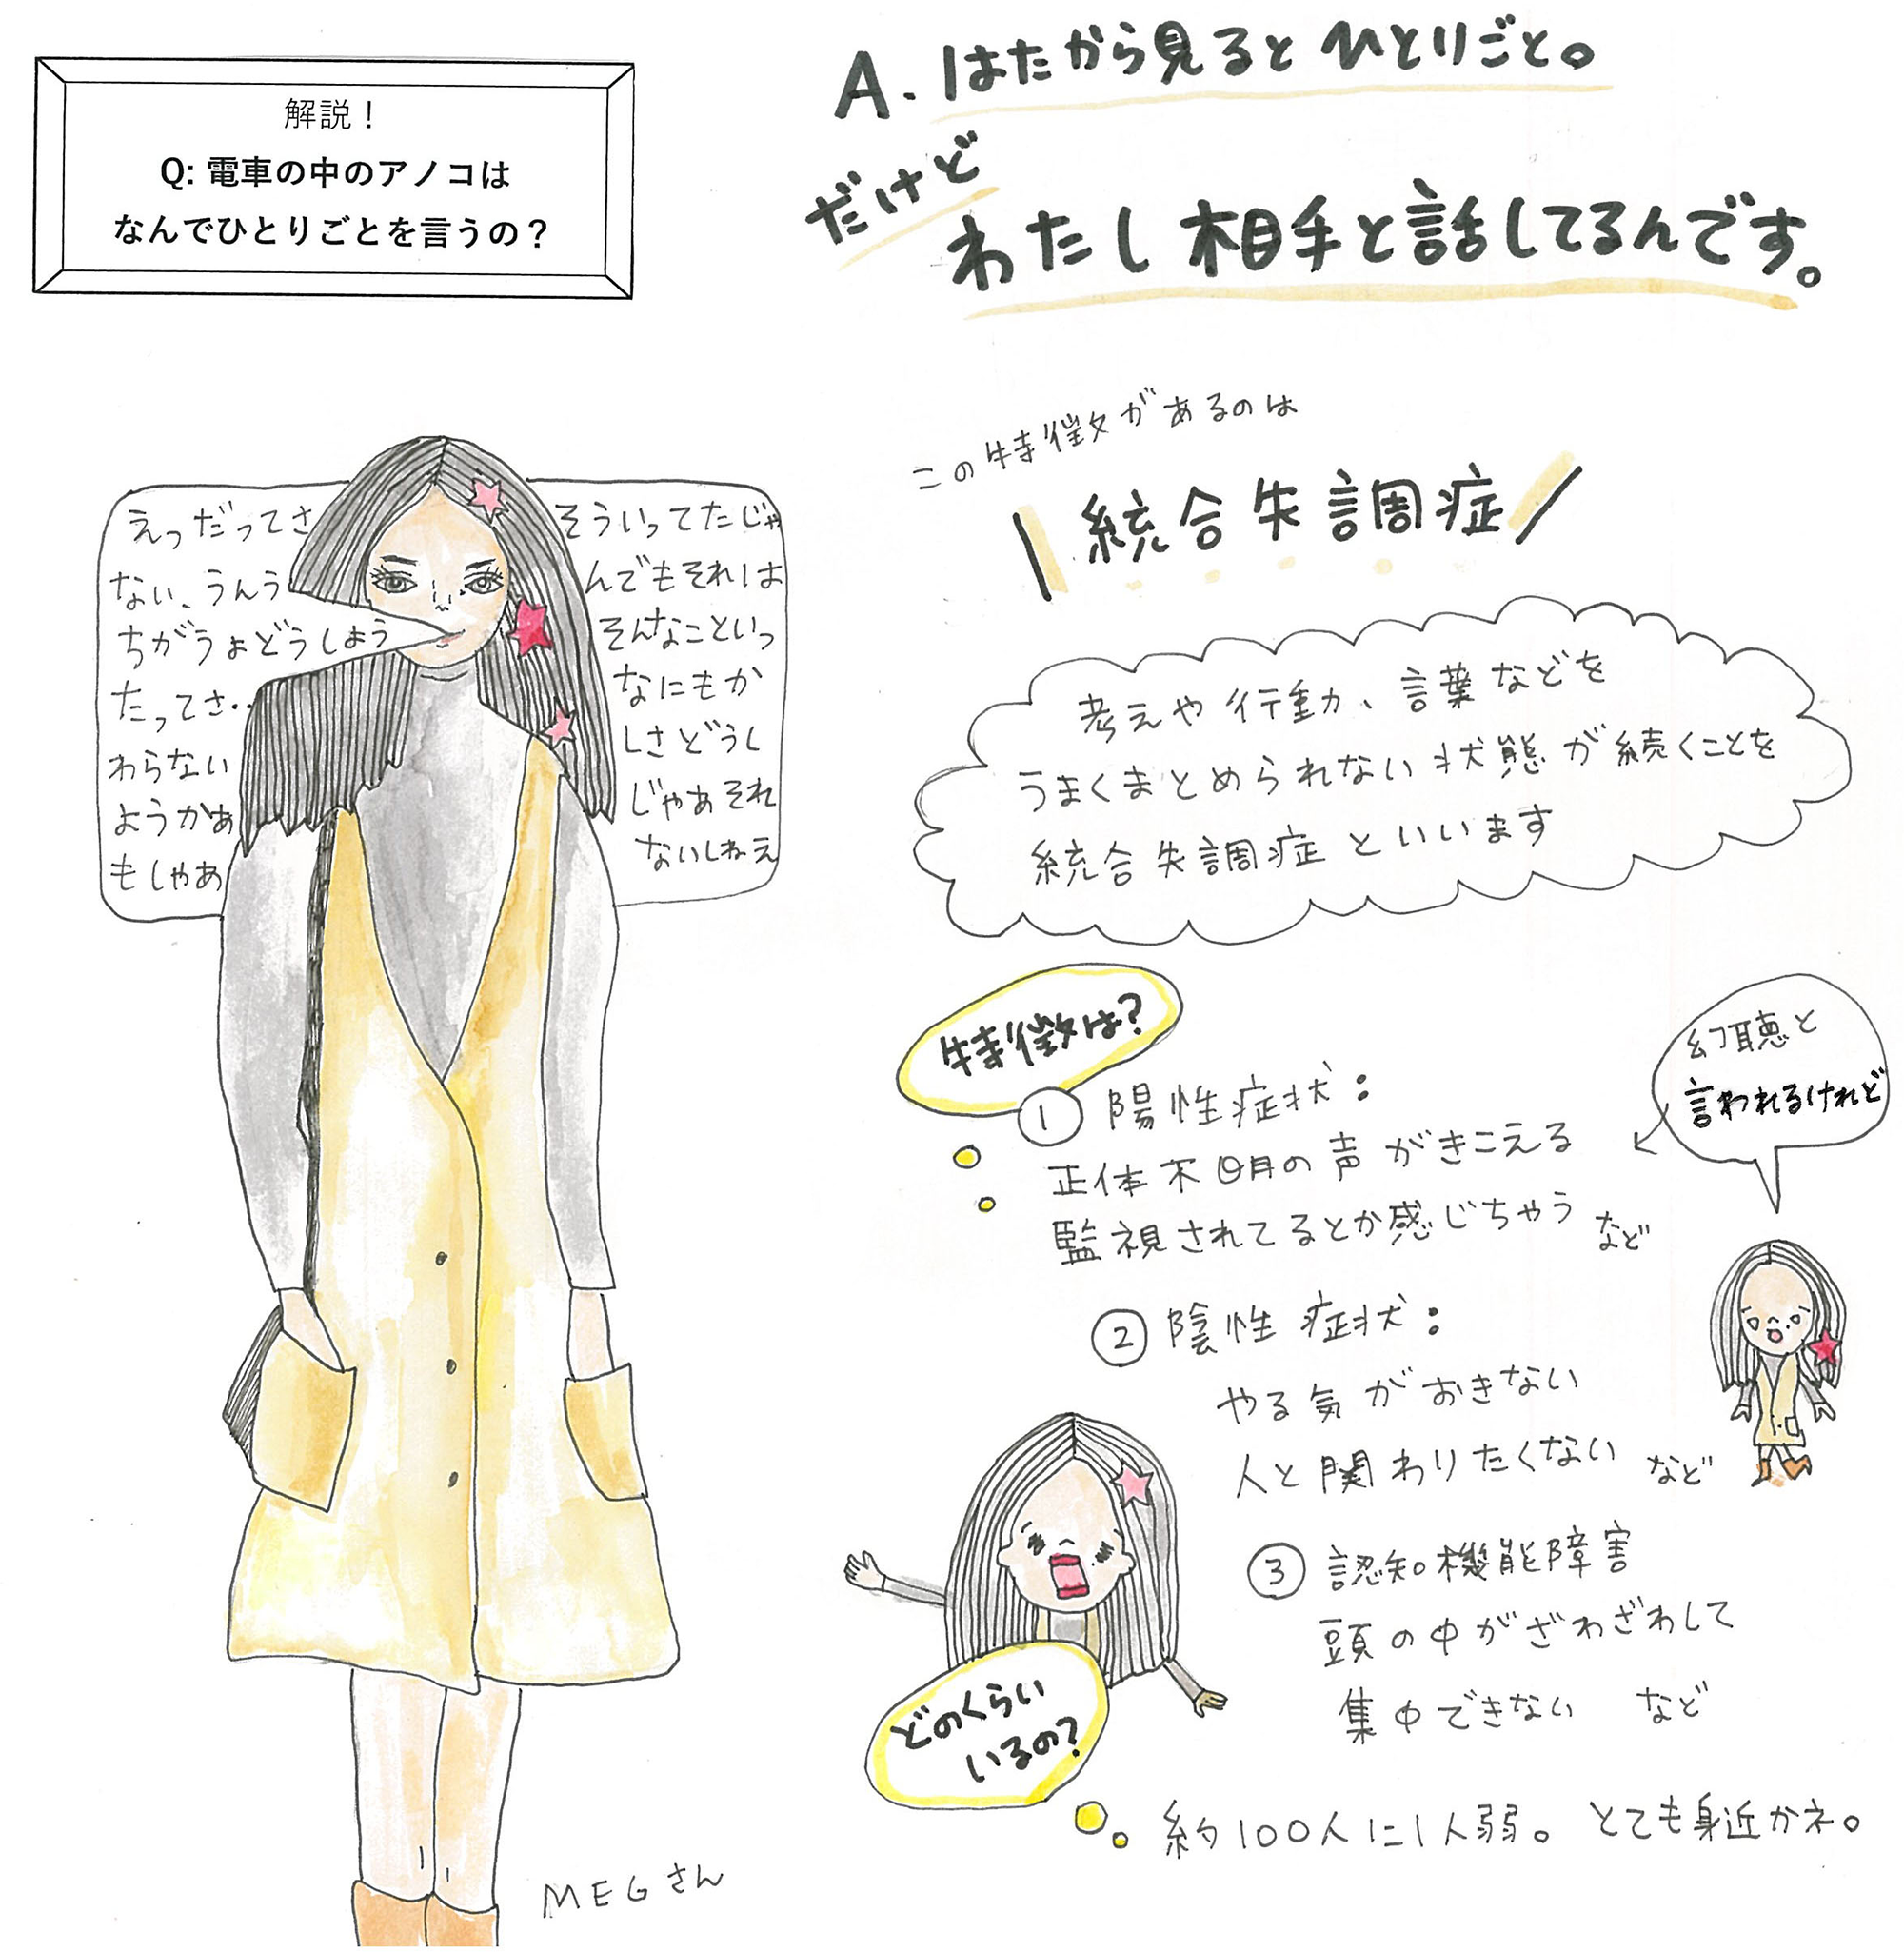 解説！
Q: 電車の中のアノコは
なんでひとりごとを言うの？
A. はたから見るとひとりごと。
だけど
わたし相手と話してるんです。
えっだってさ
ない、うんう
ちがうょどうしよう
たってさ‥
わらない
ようかぁ
もしゃあ
そういってたじゃ
んでもそれは
そんなこといっ
なにもか
しさどうし
じゃぁそれ
ないしねえ
この特徴があるのは
\ 統合失調症 /
考えや行動、言葉などを
うまくまとめられない状態が続くことを
統合失調症といいます
特徴は？
① 陽性症状：
正体不明の声がきこえる
監視されてるとか感じちゃう など
幻聴と
言われるけれど
② 陰性症状：
やる気がおきない
人と関わりたくない など
③ 認知機能障害
頭の中がざわざわして
集中できない など
どのくらい
いるの？
約100人に1人弱。とても身近かネ。
MEGさん